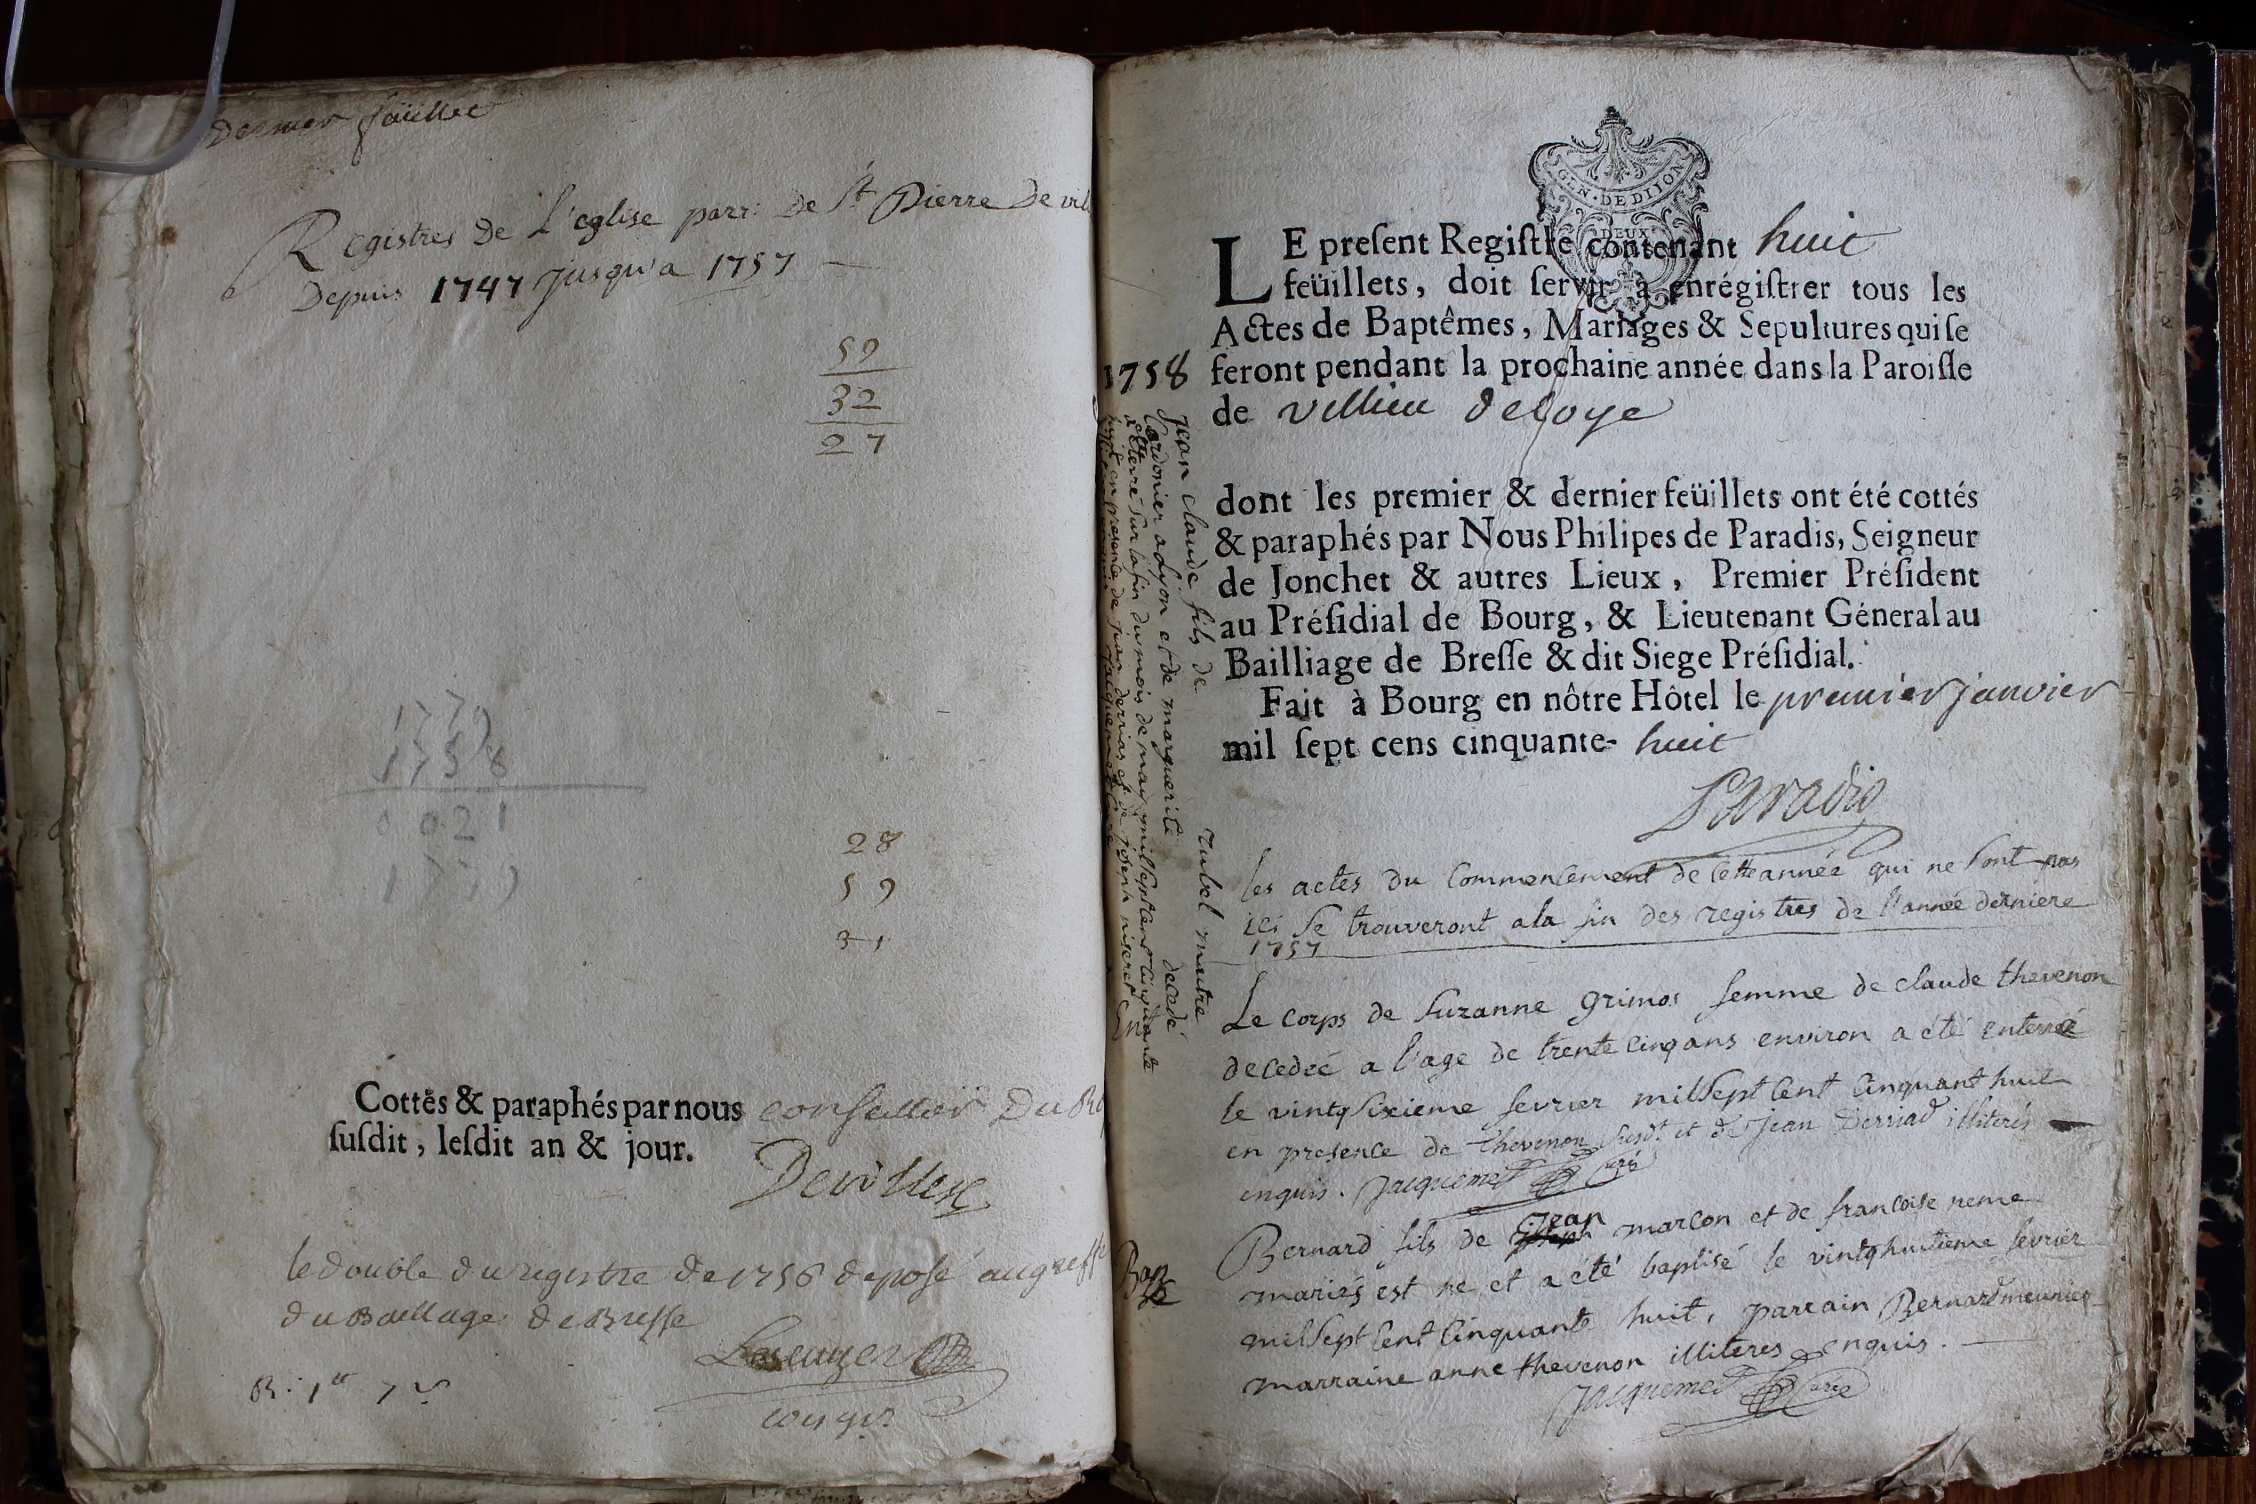 Dernier feüillet
Registres de L'eglise parr: de St Pierre de vil
Depuis 1747 jusqu'a 1757
59
32
27
1779
1758
0021
1779
28
59
31
Cottés & paraphés par nous conseiller Du
susdit, lesdit an & jour.
le double du registre de 1756 deposé au greffe
du Baillage de Bresse
GEN. DE DIJON
DEUX
LE present Registre contenant huit
feüillets, doit servir à enrégistrer tous les
Actes de Baptêmes, Mariages & Sepultures qui se
1758
feront pendant la prochaine année dans la Paroisse
de villieu deloye
dont les premier & dernier feüillets ont été cottés
& paraphés par Nous Philipes de Paradis, Seigneur
de Jonchet & autres Lieux, Premier Président
au Présidial de Bourg, & Lieutenant Géneral au
Bailliage de Bresse & dit Siege Présidial.
Fait à Bourg en nôtre Hôtel le premier janvier
mil sept cens cinquante- huit
Paradis
les actes du commencement de cette année qui ne sont pas
ici se trouveront a la fin des registres de l'année derniere
1757
Le corps de suzanne grimos femme de claude thevenon
decedée a l'age de trente cinq ans environ a été enterré
le vintqsixieme fevrier mil sept cent cinquant huit
en presence de thevenon susdt et de jean derriad illiterés
enquis. jacquemet curé
Bernard fils de jean marcon et de francoise neme
mariés est ne et a été baptisé le vintqhuitieme fevrier
mil sept cent cinquante huit, parrain Bernard meunier
marraine anne thevenon illiteres enquis.
jacquemet curé
Bap
jean claude fils de rubel maitre
cordonier a lyon et de marguerite decedé
a été enterré sur la fin du mois de may mil sept cent cinquante
huit en presence de jean derriad et de joseph niseret